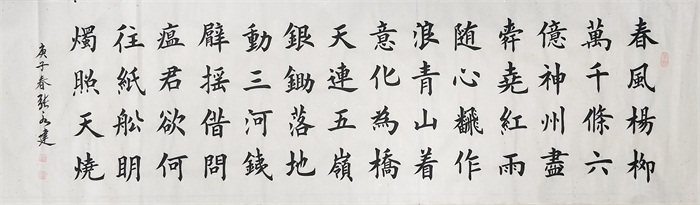 春風楊柳
萬千條六
億神州盡
舜堯紅雨
随心飜作
浪青山着
意化為橋
天連五嶺
銀鋤落地
動三河銕
臂摇借問
瘟君欲何
往紙舩明
燭照天燒
庚子春张永建